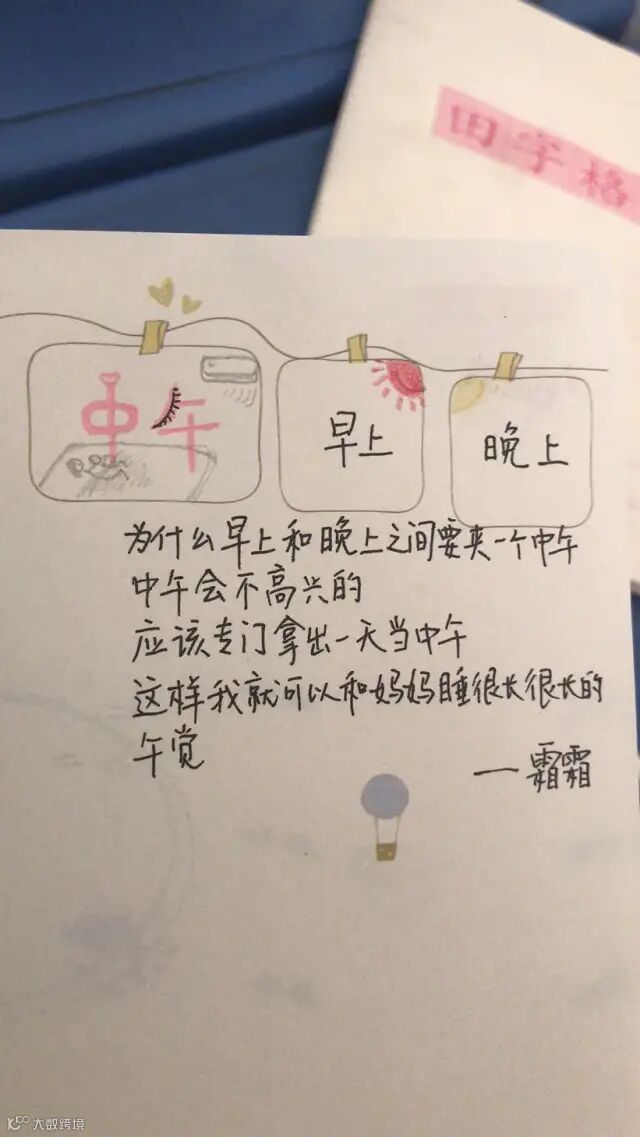 田字格
中午
早上
晚上
为什么早上和晚上之间要夹一个中午
中午会不高兴的
应该专门拿出一天当中午
这样我就可以和妈妈睡很长很长的
午觉
—霜霜
大数跨境